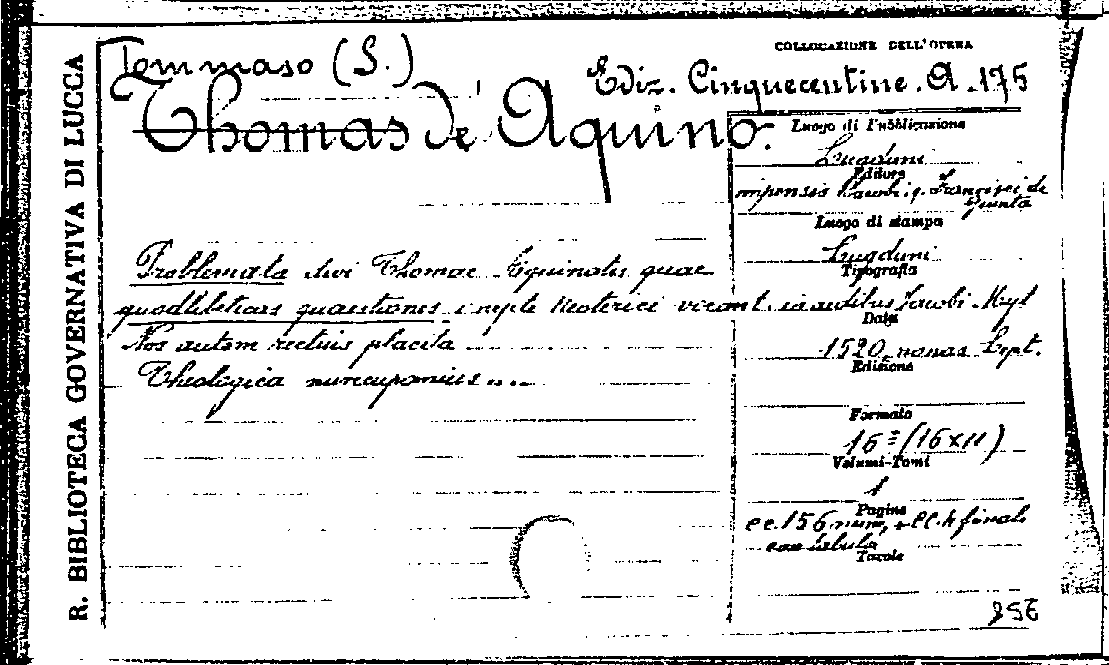 R. BIBLIOTECA GOVERNATIVA DI LUCCA
Tommaso (S.)
Thomas de' Aquino.
COLLOCAZIONE DELL'OPERA
Ediz. Cinquecentine. A. 175
Luogo di Pubblicazione
Lugduni
Editore
impensis Jacobi q. Francisci de
Giunta
Luogo di stampa
Lugduni
Tipografia
in aedibus Jacobi Myt
Data
1520, nonas Sept.
Edizione
Formato
16° (16x11)
Volumi-Tomi
1
Pagine
cc. 156 num, + cc. 4 finali
con tabula
Tavole
Problemata divi Thomae Aquinatis quae
quodlibeticas quaestiones inepte Neoterici vocant.
Nos autem rectius placita
Theologica nuncupamus....
856